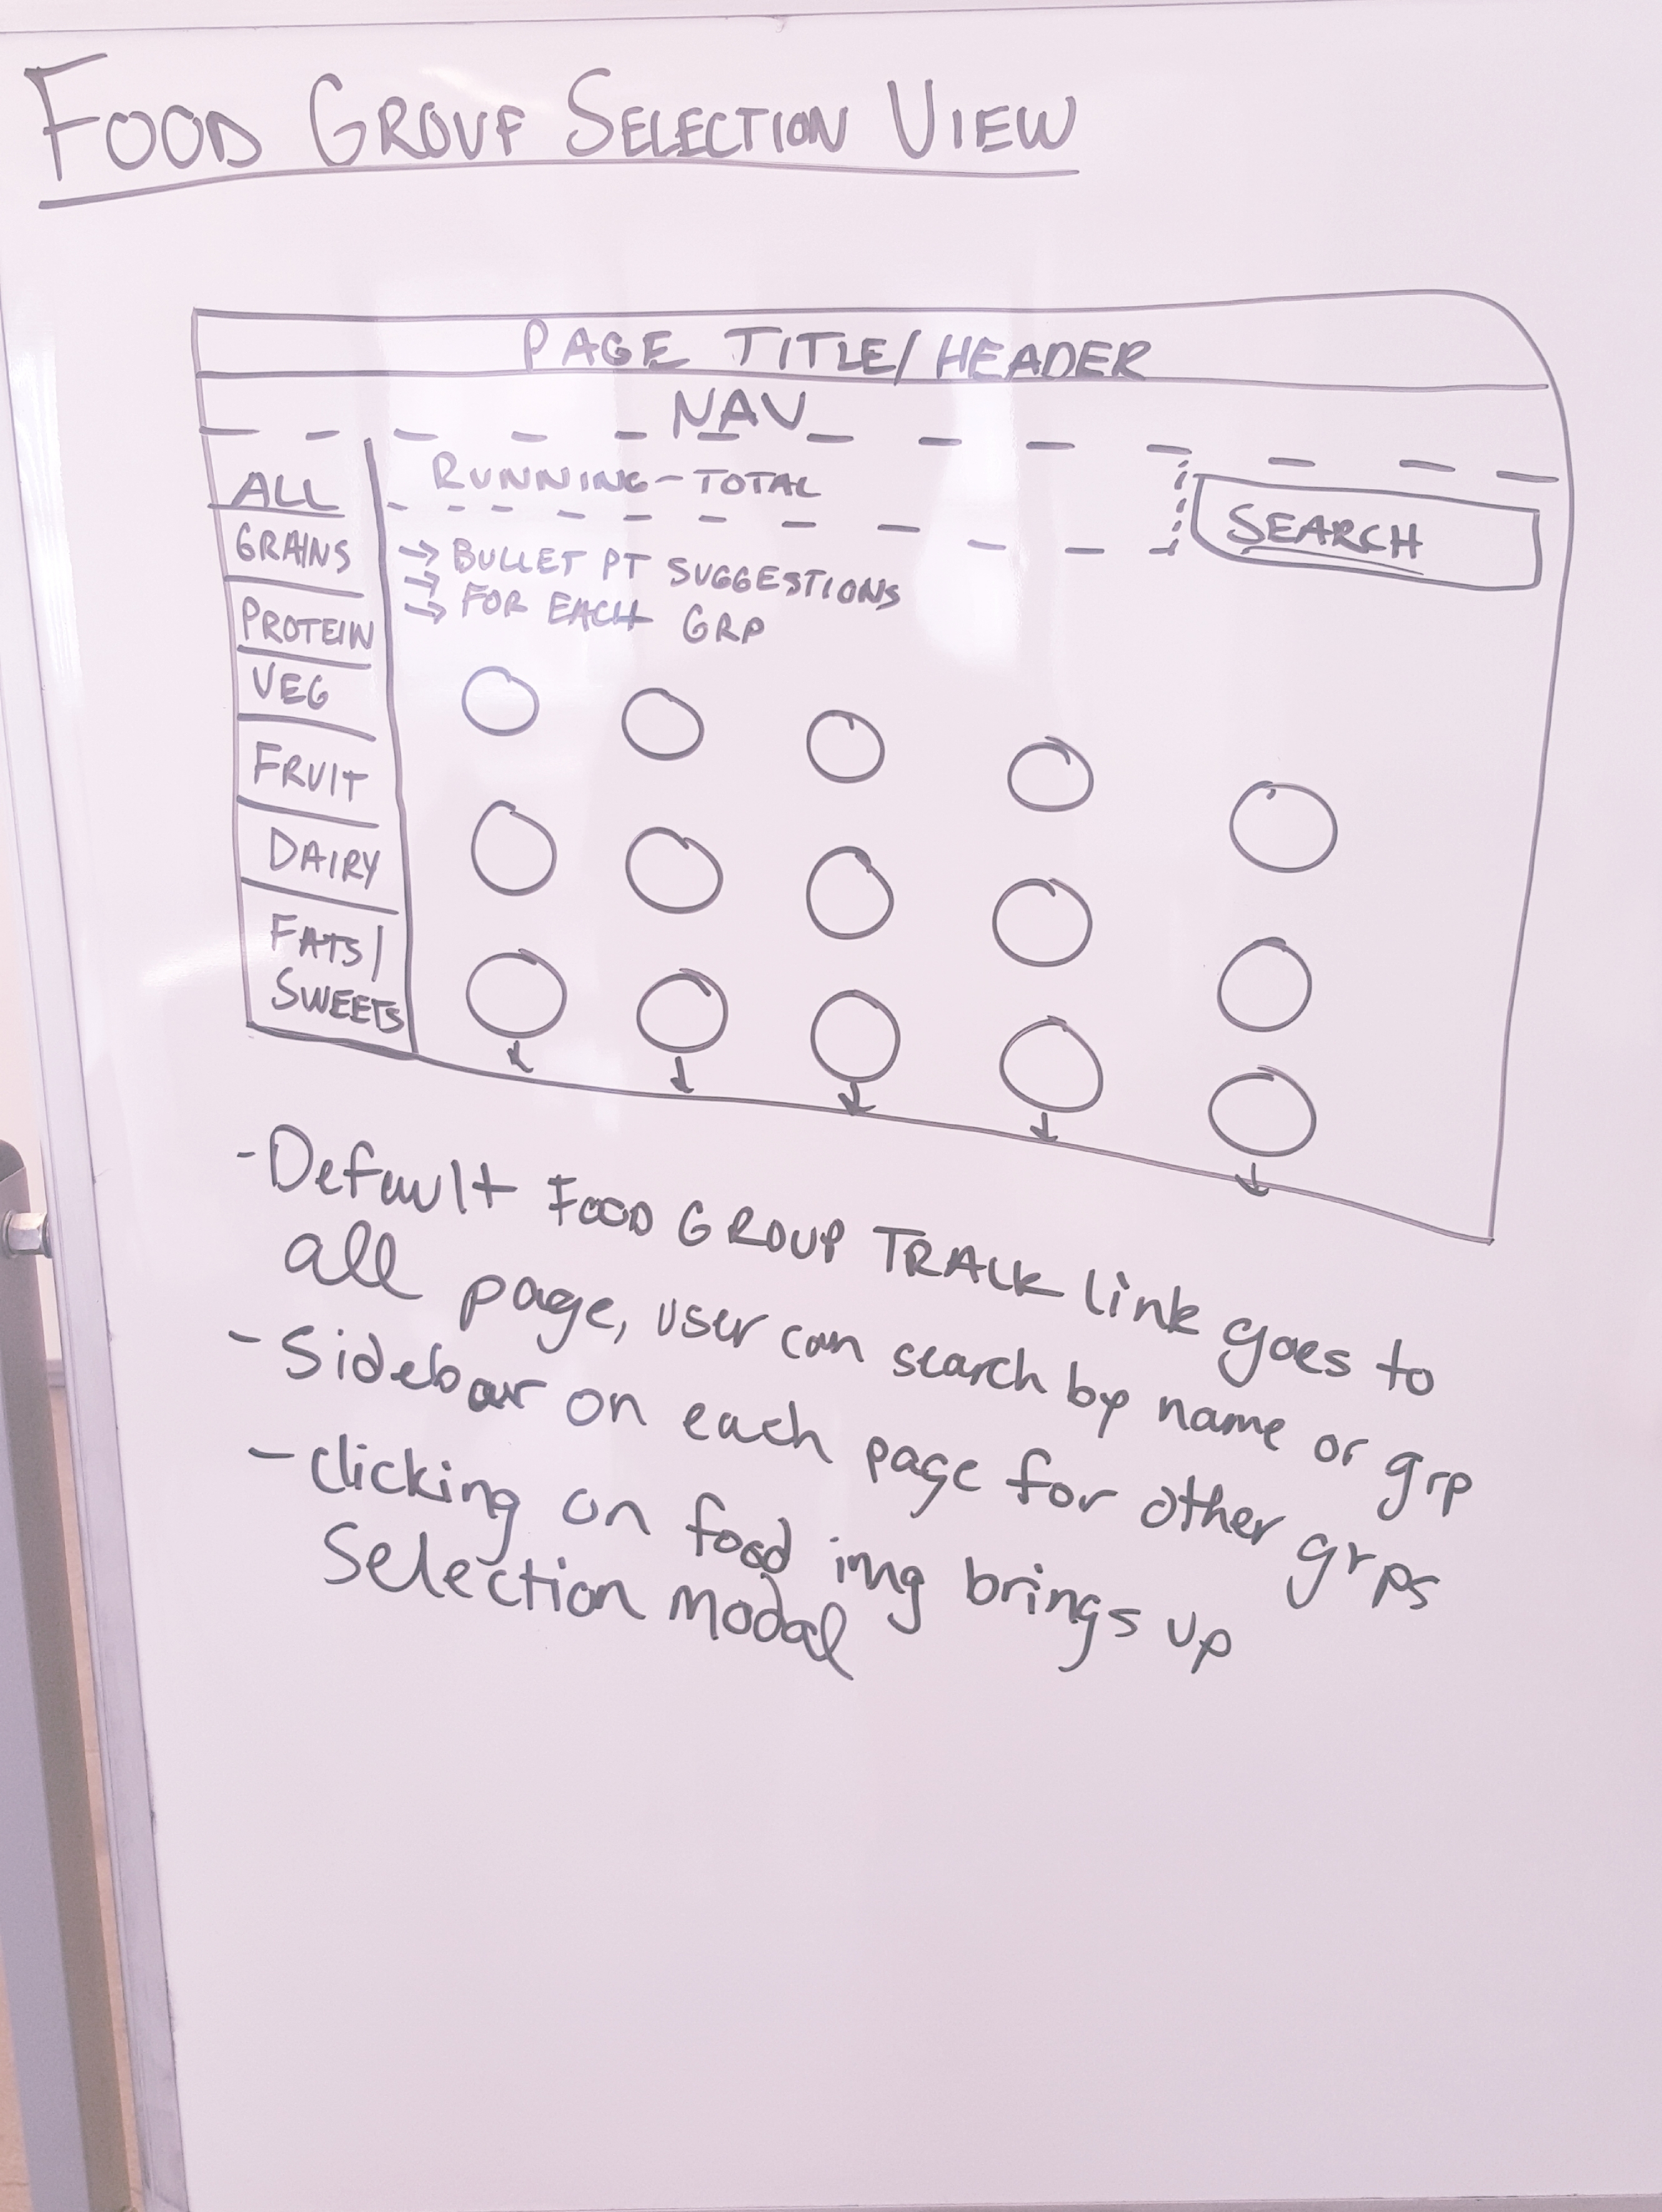 FOOD GROUP SELECTION VIEW
PAGE TITLE/HEADER
NAV
ALL
GRAINS
PROTEIN
VEG
FRUIT
DAIRY
FATS/
SWEETS
RUNNING-TOTAL
SEARCH
→ BULLET PT SUGGESTIONS
→
→ FOR EACH GRP
- Default FOOD GROUP TRACK link goes to
all page, user can search by name or grp
- Sidebar on each page for other grps
- clicking on food img brings up
Selection modal